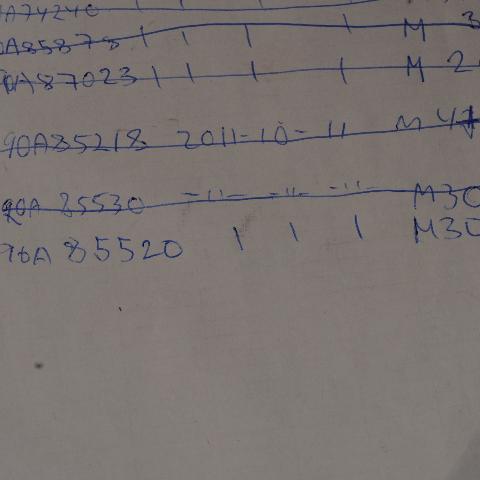 A74240 | | | |
0A85878 | | | | M 3
0A87023 | | | | M 2
90A85218 2011-10-11 M 47
90A 85530 -"- -"- -"- M30
90A 85520 | | | M30